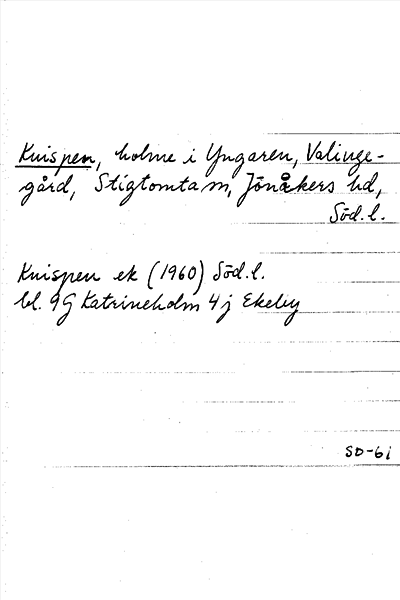 Knispen, holme i Yngaren, Valinge-
gård, Stigtomta sn, Jönåkers hd,
Söd.l.
Knispen ek (1960) Söd.l.
bl. 9G Katrineholm 4j Ekeby
SD-61